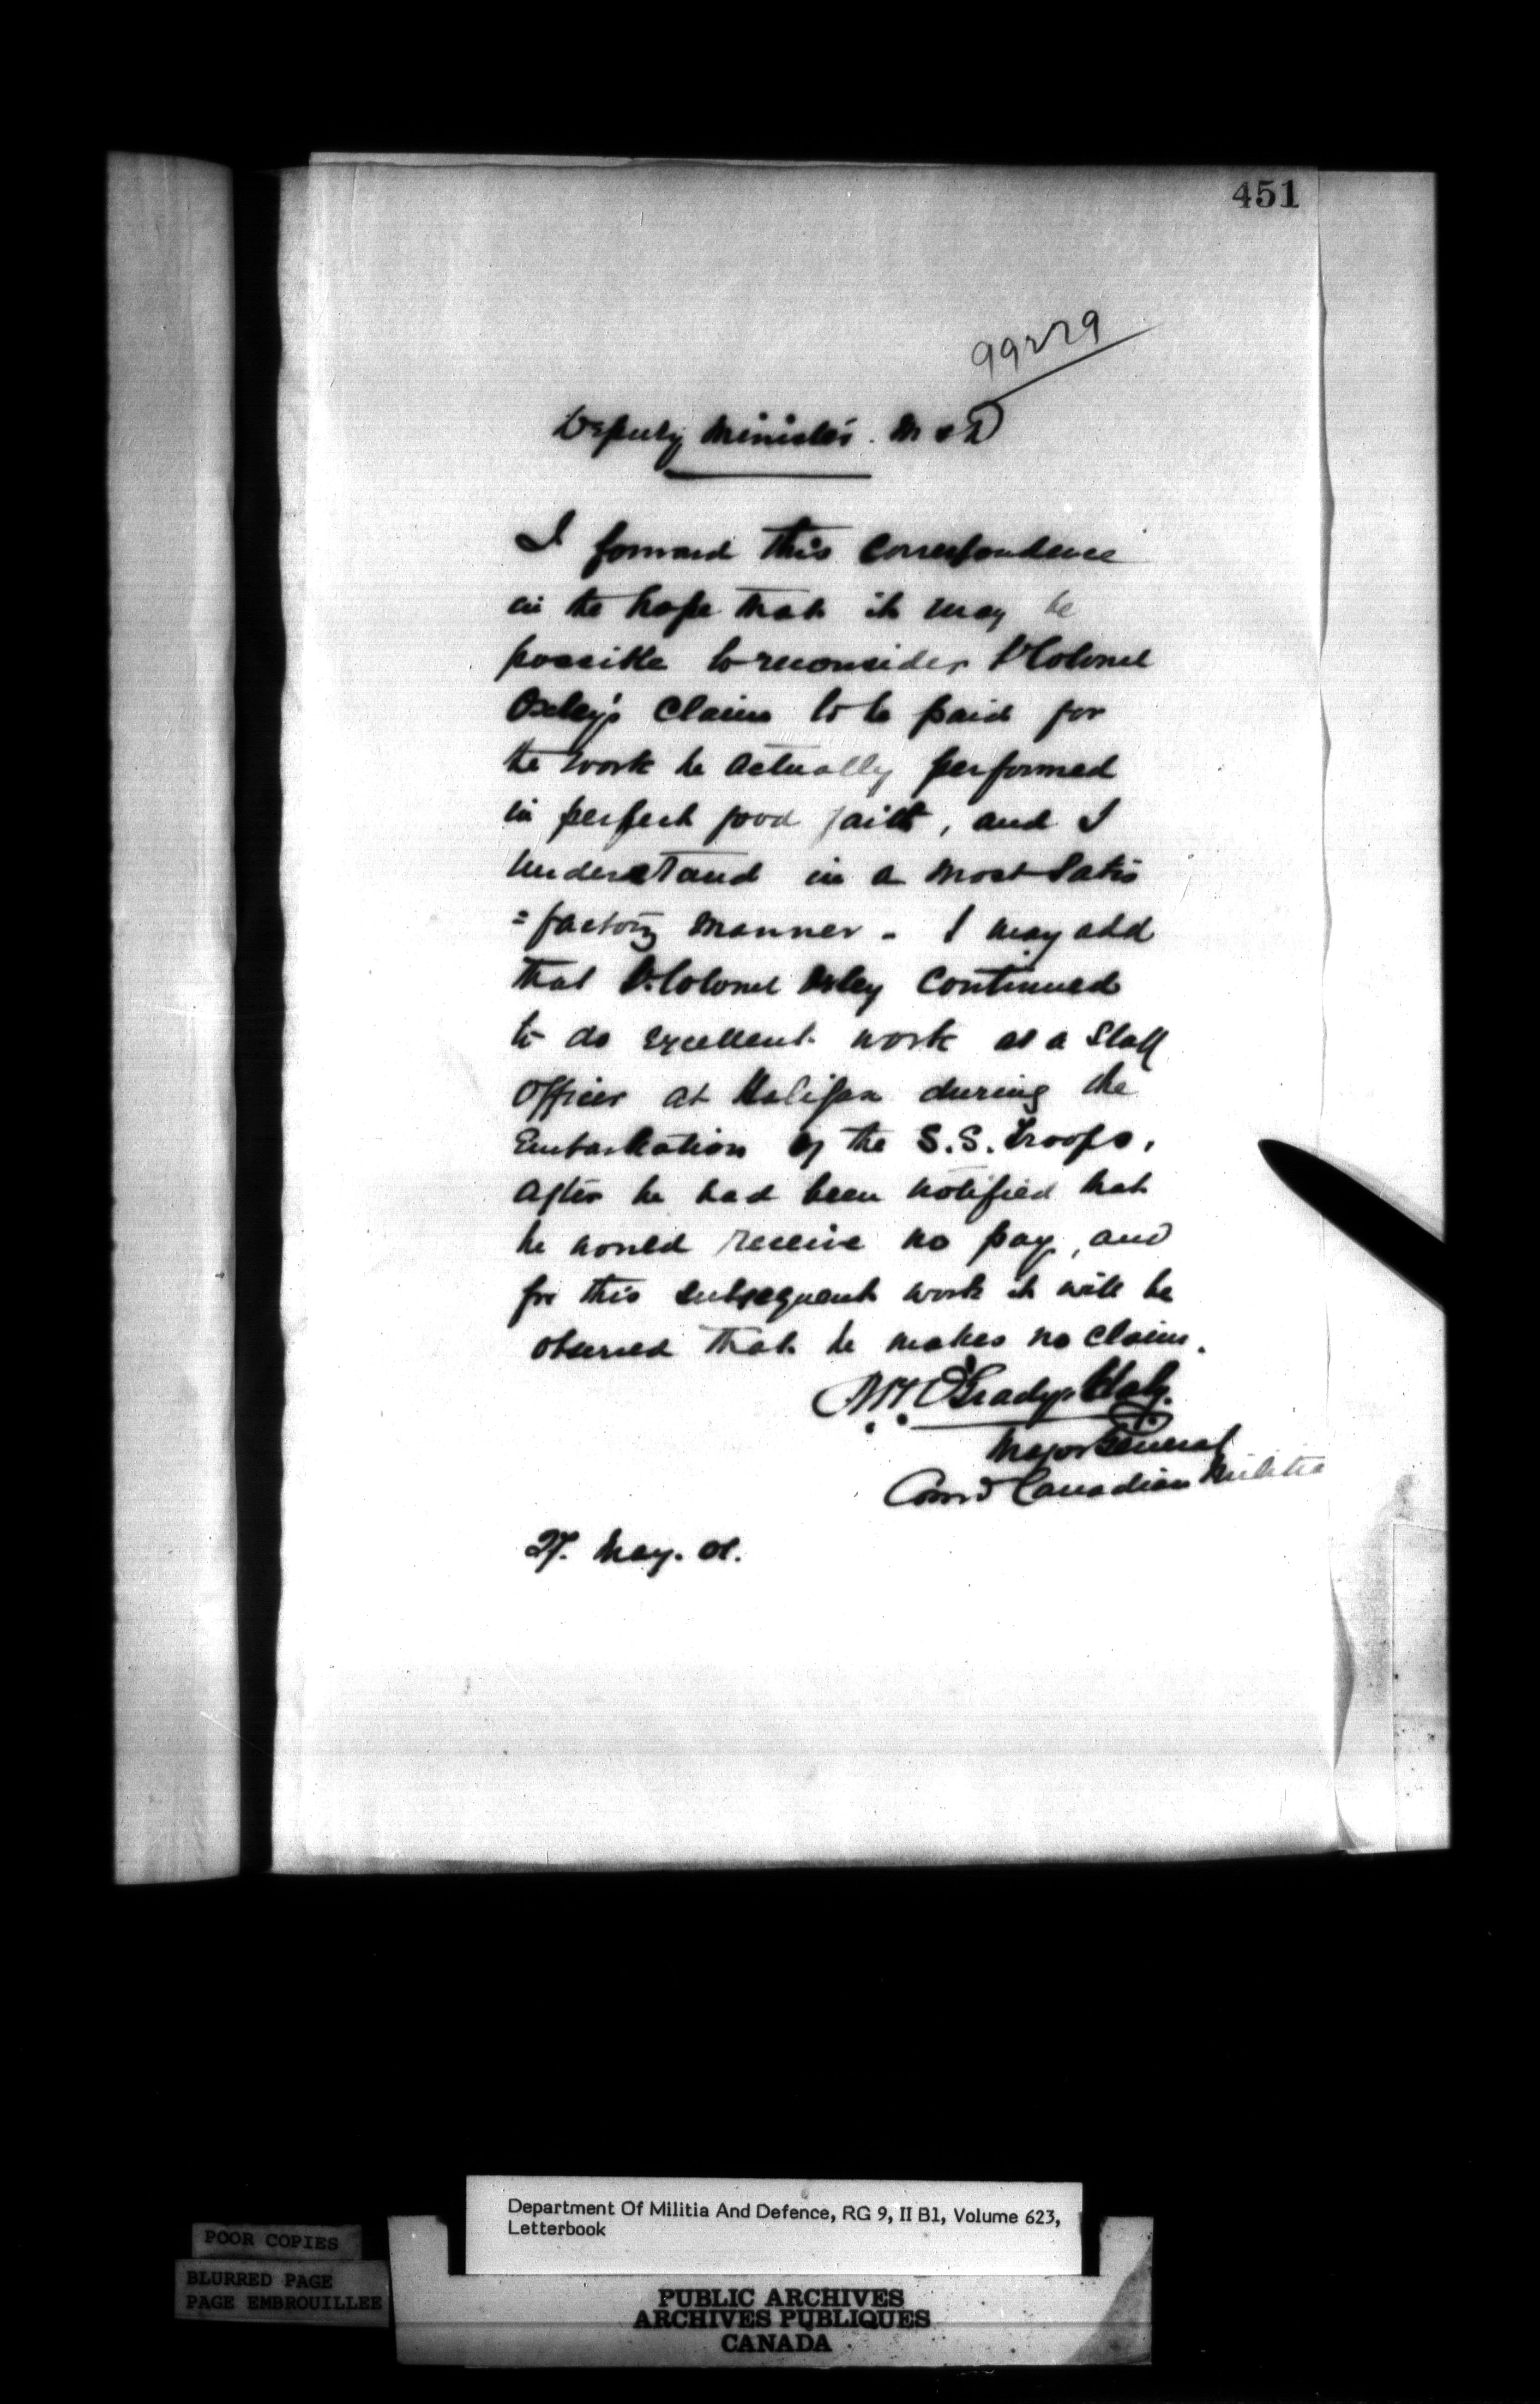 451
99229
Deputy Minister. M & D
I forward this Correspondence
in the hope that it may be
possible to reconsider Lt Colonel
Oxley's Claim to be paid for
the work he actually performed
in perfect good faith, and I
understand in a most Satis
=factory manner. I may add
that Lt. Colonel Oxley Continued
to do excellent work as a Staff
Officer at Halifax during the
Embarkation of the S.S. Troops,
after he had been notified that
he would receive no pay, and
for this subsequent work it will be
observed that he makes no claim.
O'Grady Haly.
Major General
Comd Canadian Militia
27. May. 01.
Department Of Militia And Defence, RG 9, II B1, Volume 623,
Letterbook
POOR COPIES
BLURRED PAGE
PAGE EMBROUILLEE
PUBLIC ARCHIVES
ARCHIVES PUBLIQUES
CANADA